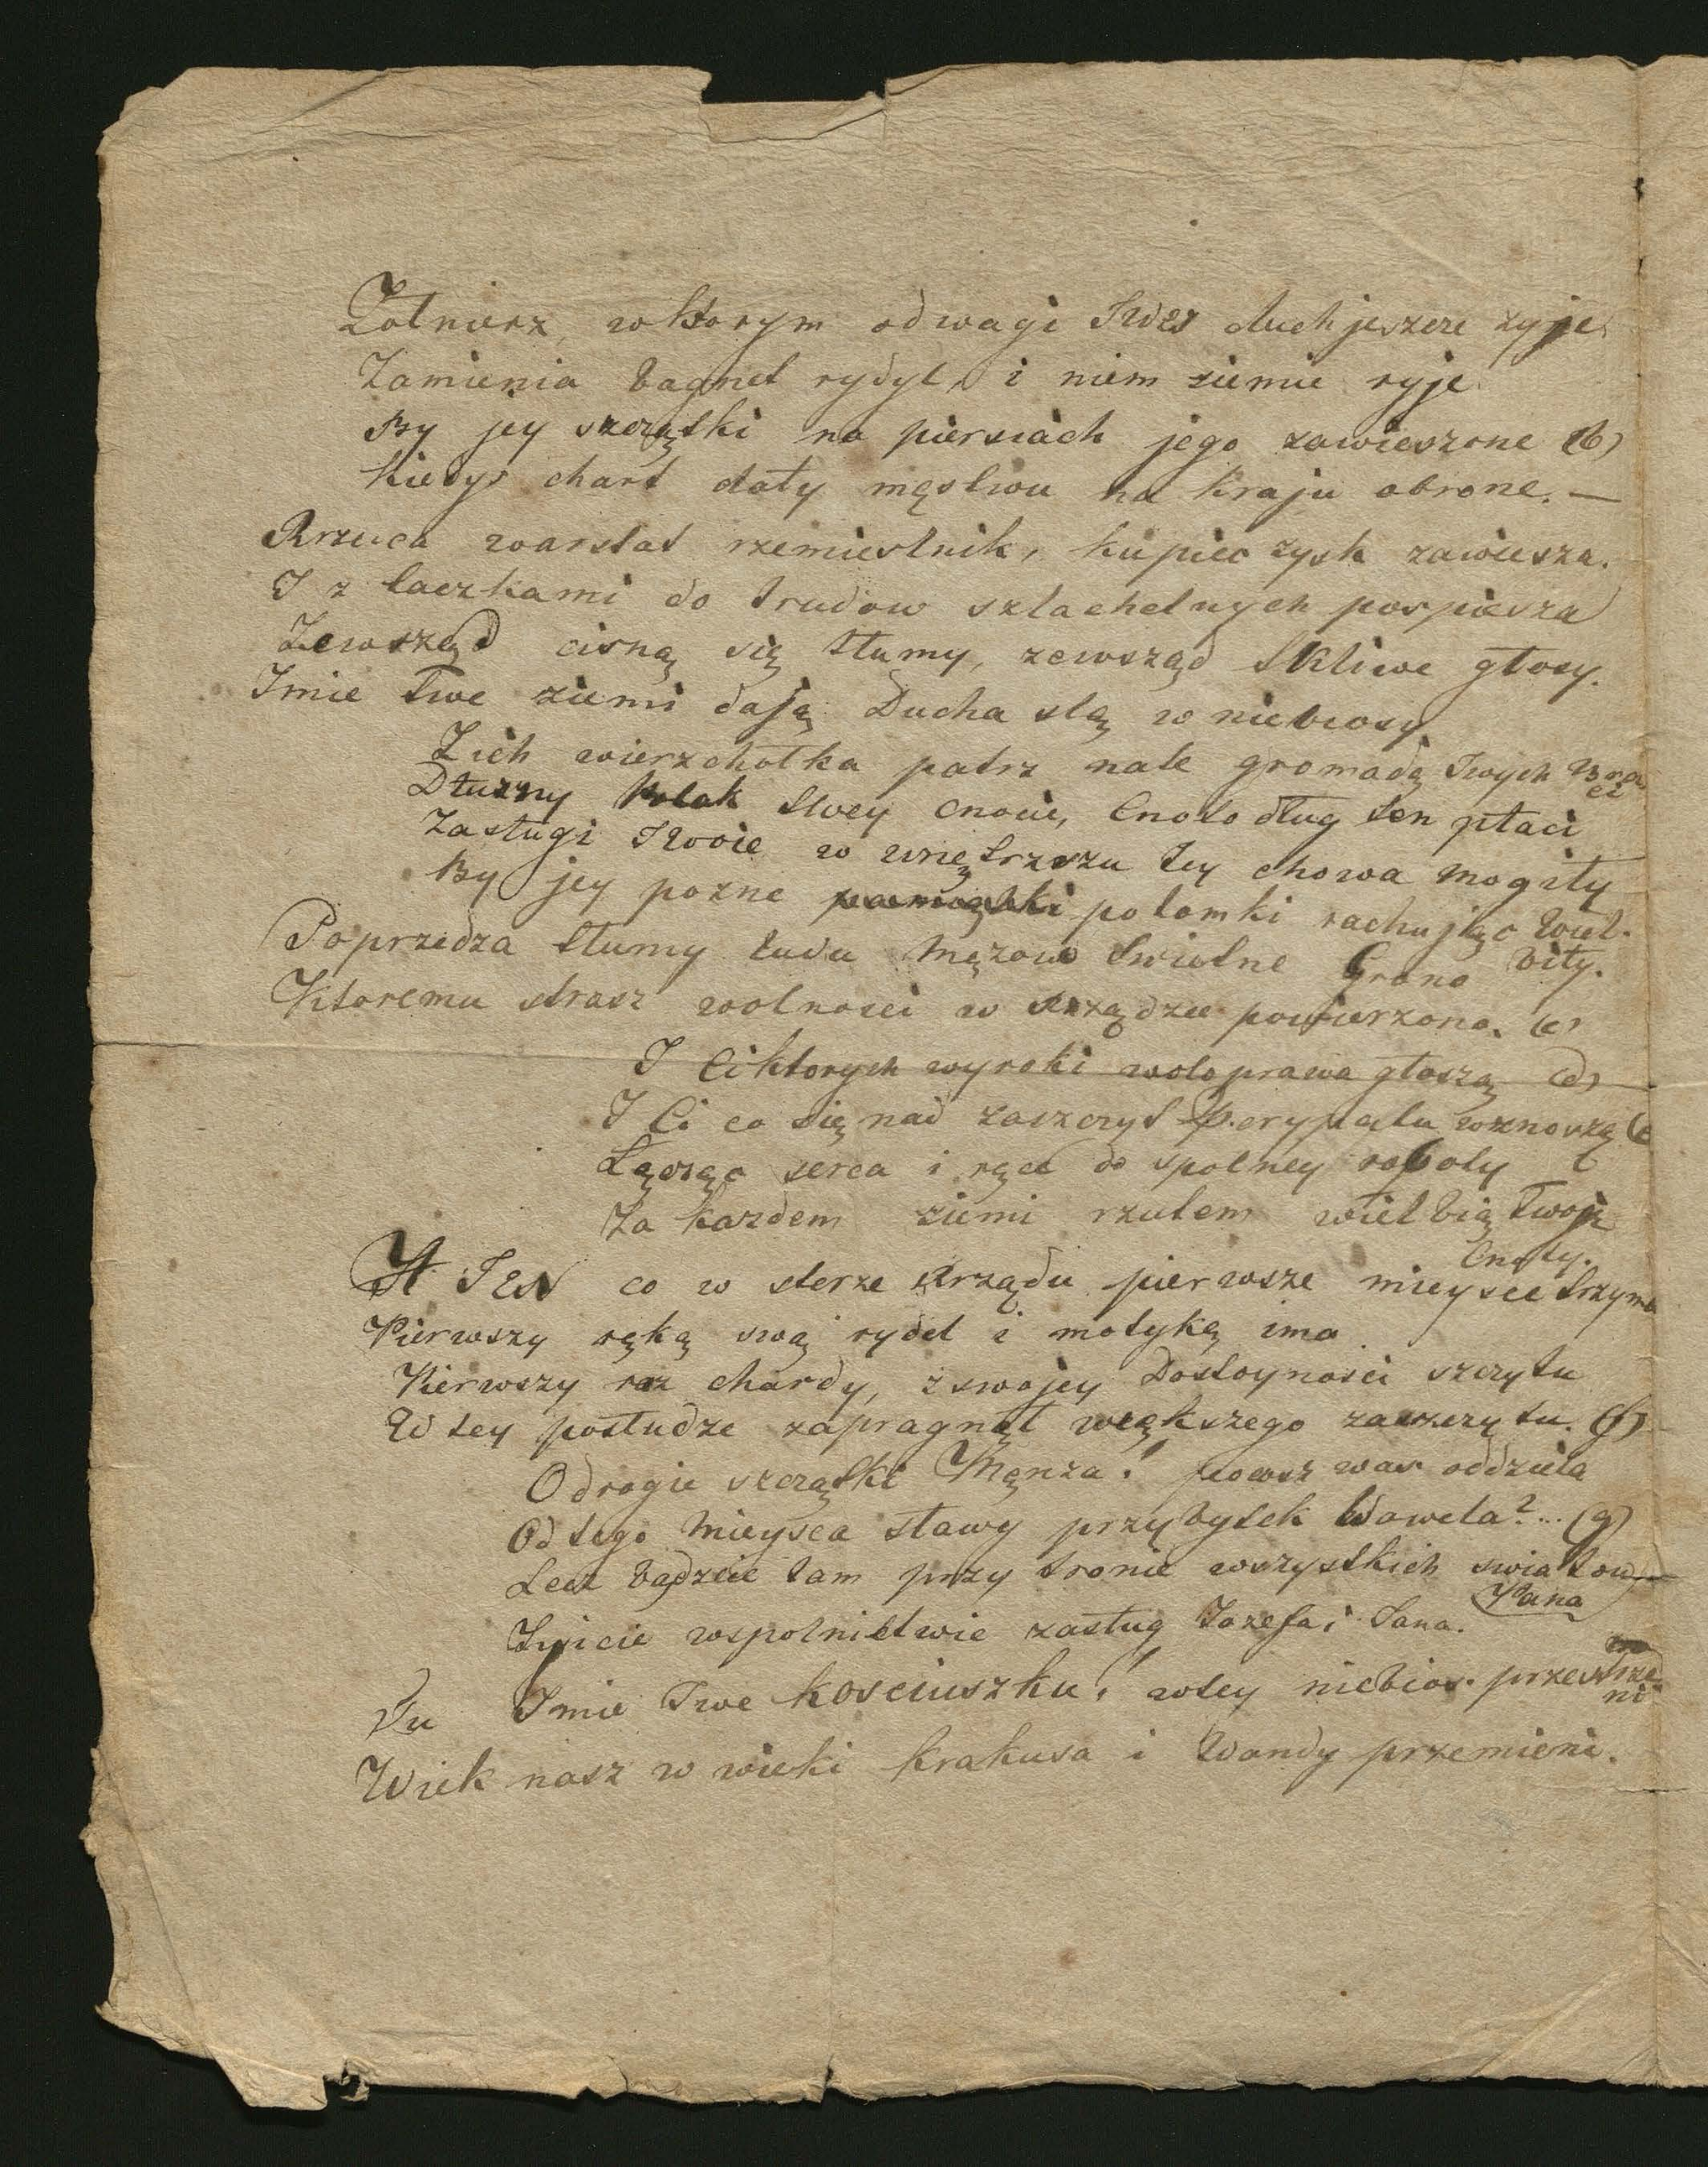 Zołnierz, w ktorym odwagi Twey duch jeszcze zyje
Zamienia bagnet rydyl, i niem ziemie ryje
By jey szczątki na piersiach jego zawieszone (b)
Kiedys chart dały męstwu na kraju obrone. —
Rzuca warstat rzemieslnik, kupiec zysk zawiesza.
I z taczkami do trudow szlachetnych pospiesza
Zewsząd cisną się tłumy, zewsząd tkliwe głosy.
Imie Twe ziemi dają Ducha slą w niebiosy
Z ich wierzchołka patrz na te gromadę Twych Bra
ci
Dłuzny Polak Twey cnocie, Cnoto dług ten płaci
Zasługi Twoie w wnętrzszu tey chowa mogiły
By jey pozne potomki rachując wiel-
biły.
Poprzedza tłumy ludu Męzow swietne Grono
Ktoremu straz wolnosci w Rządzie powierzono. (c)
I Ci ktorych wyroki wolo prawa głoszą (d)
I Ci co się nad zaszczyt Perypatu wznoszą (e
Łącząc serca i ręce do spolney roboty
Za kazdem ziemi rzutem wielbią Twoje
Cnoty.
A TEN co w sterze Rządu pierwsze mieysce trzyma
Pierwszy ręką swą rydel i motykę ima
Pierwszy raz chardy, z swojey Dostoynosci szczytu
W tey posłudze zapragnął większego zaszczytu. (f)
O drogie szczątki Męnza! ktoz was oddziela
Od tego mieysca sławy przybytek Wawela?... (g)
Lecz bądzcie tam przy tronie wszystkich swiatow
Pana
Zyicie wspolnictwie zasług Jozefa i Jana.
Tu Imie Twe Kosciuszku! w tey niebios. przestrze-
ni
Wiek nasz w wieki Krakusa i Wandy przemieni.